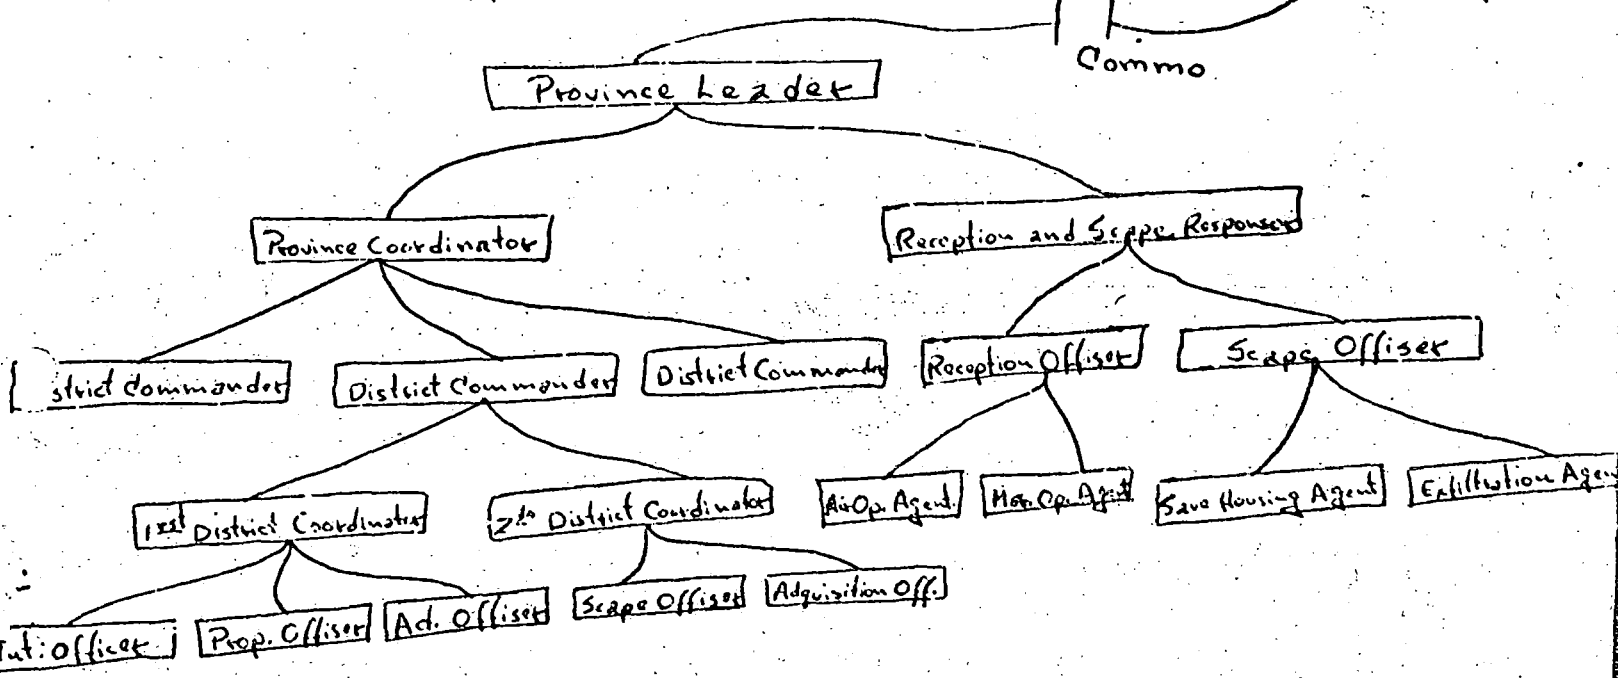 Commo
Province Leader
Province Coordinator
Reception and Scape Responser
strict Commander
District Commander
District Commander
Reception Offiser
Scape Offiser
1rst District Coordinator
2th District Coordinator
Air Op. Agent
Mar. Op. Agent
Save Housing Agent
Exfiltration Agen
Int. Officer
Prop. Offiser
Ad. Offiser
Scape Offiser
Adquisition Off.